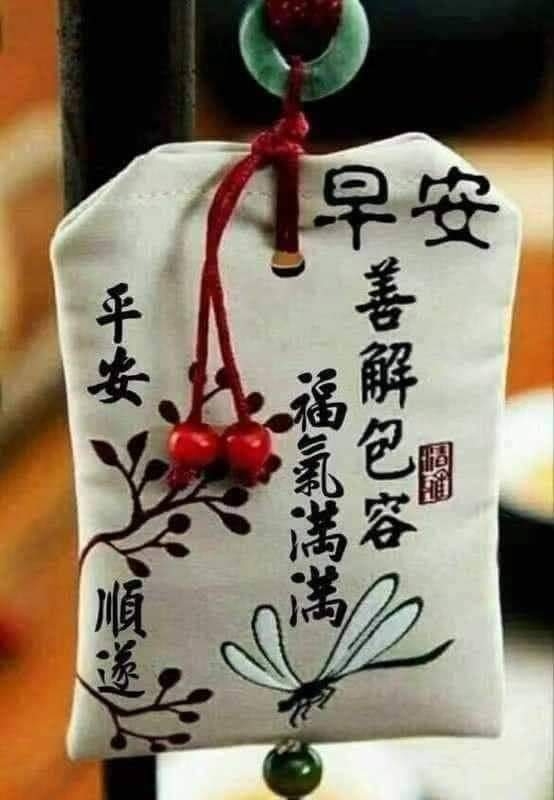 早安
善解包容
福氣滿滿
平安
順遂